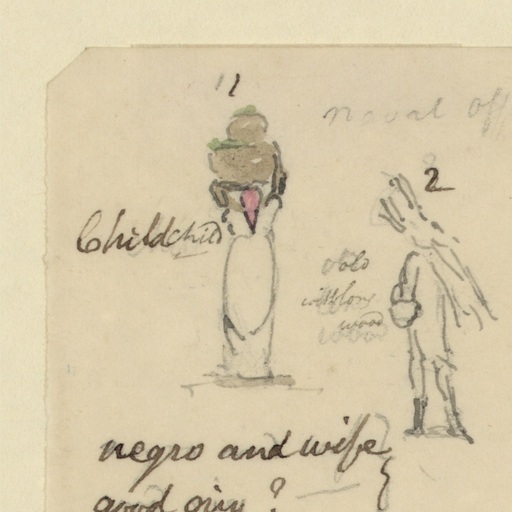 11
naval off
2
Child child
old
with long
wood
negro and wife
good